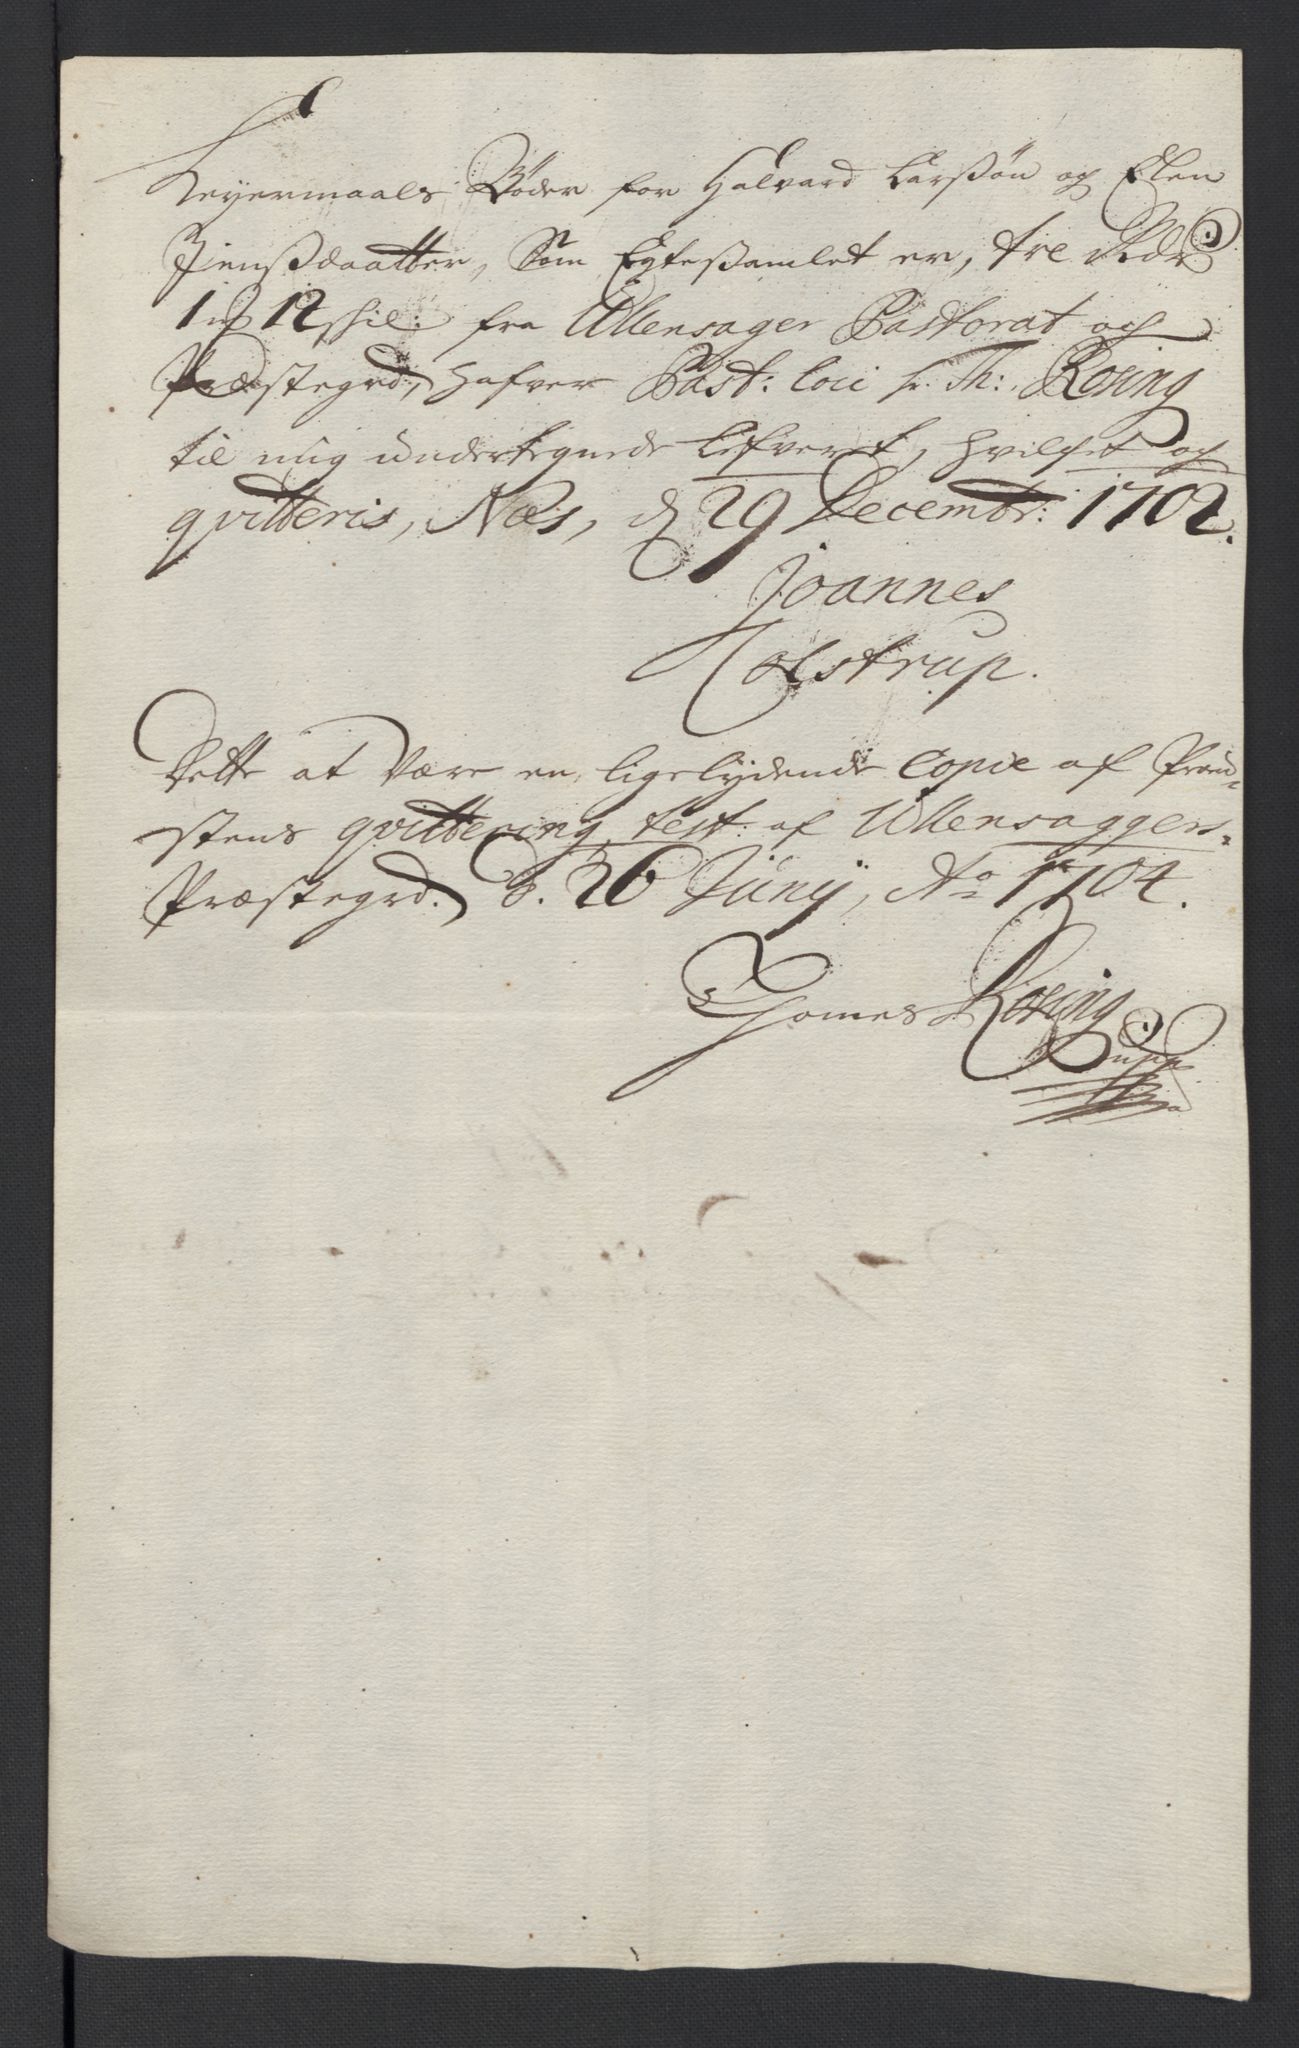 Leyermaals Bøder for Halvard Larsßøn og Elen
Jensßdaatter, Som Egteßamlet er, tre Rdr
1 12 skil: fra Ullensager Pastorat och
Præstegrd, hafver Past: loci hr. Th: Rosing
til mig undertegnede lefveret, hvilchet og
qvitteris, Næs, d 29 Decembr: 1702.
Joannes
Colstrup.
Dette at være en ligelydende Copie af Prov-
stens qvittering, test: af Ullensaggers-
Præstegrd. d. 26 Junij, Ao 1704.
Thomes Rosing